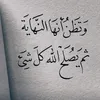 وَتَظُنُّ أنَّهَا النِّهَايَة
ثمَّ يُصْلِحُ اللَّه كلَّ شَيْ